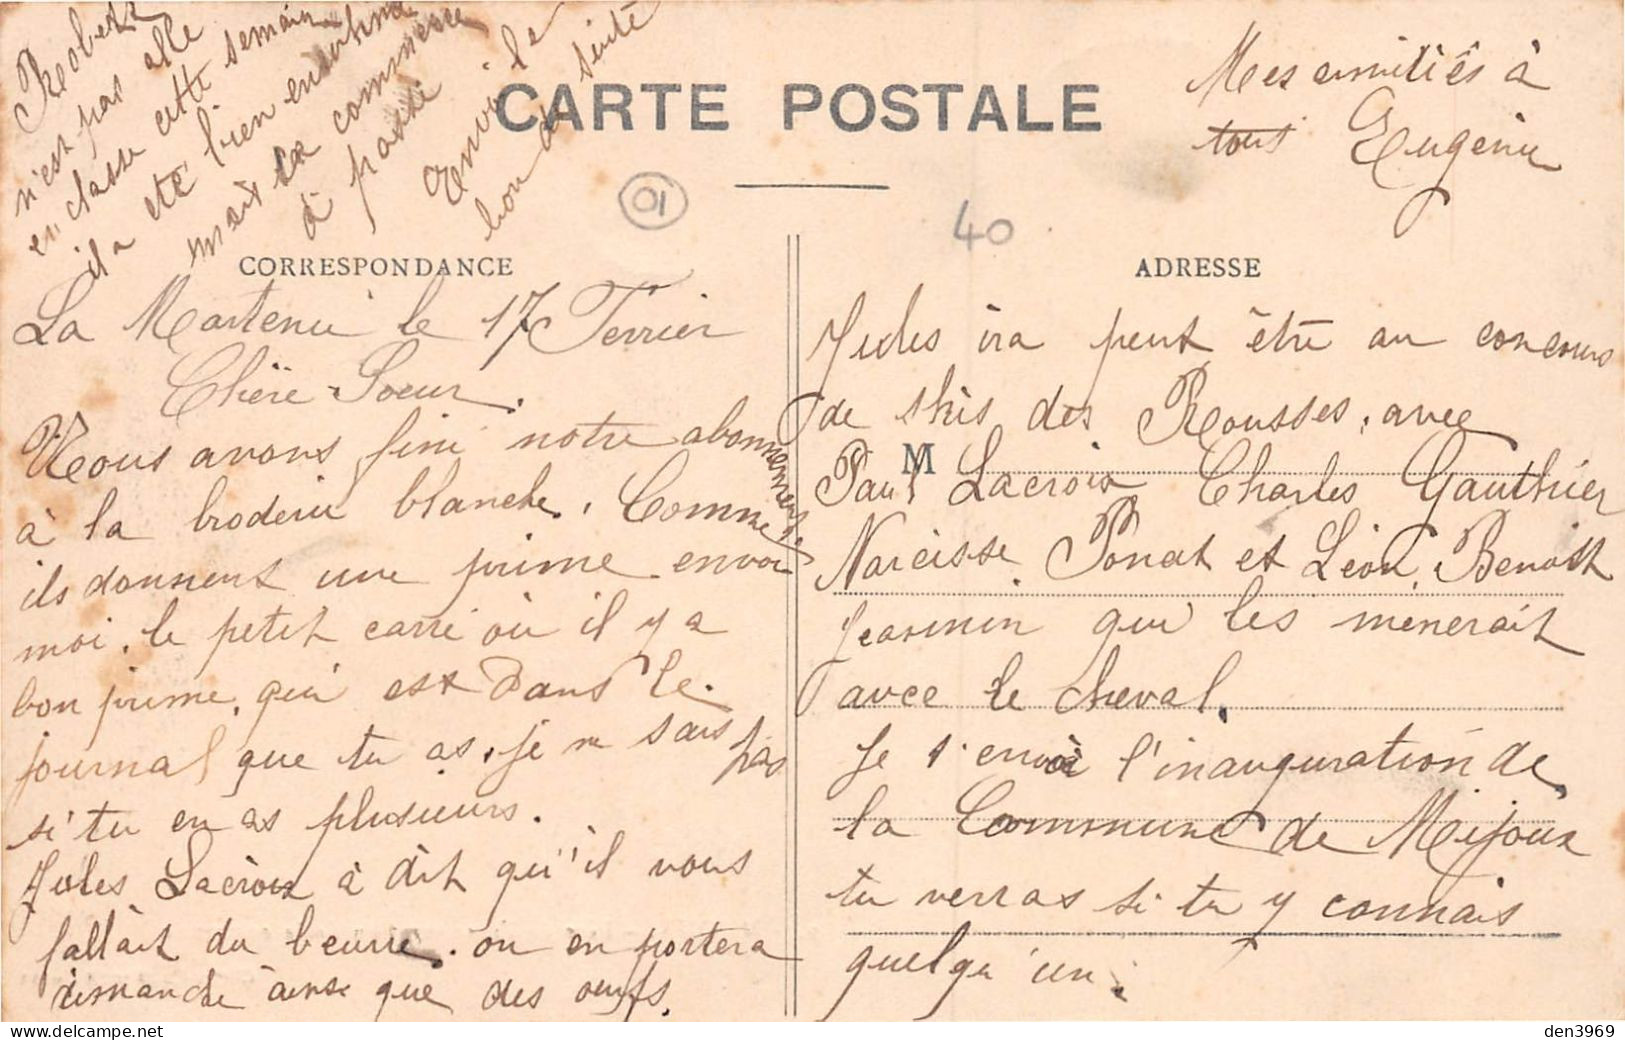 CARTE POSTALE
CORRESPONDANCE
La Martenie le 17 Ferrier
Chère Soeur.
Nous avons fini notre abonnement
à la broderie blanche. Comme
ils donnent une prime envoi
moi. le petit carré où il y a
bon prime, qui est Dans le.
journal que tu as. je ne sais pas
si tu en as plusieurs.
Jules Lacroix à dit qu'il vous
fallait du beurre. on en portera
dimanche ainse que des oeufs.
ADRESSE
M
Jules ira peut être au concours
de skis des Rousses. avec
Paul Lacroix Charles Gauthier
Narcisse Ponat et Léon, Benoit
Jeannin qui les menerait
avec le cheval.
Je t'envoi l'inauguration de
la Commune de Mijoux
tu verras si tu y connais
quelqu'un.
Robert
n'est pas alle
en classe cette semaine
il a été bien enrhume
mais ca commence
à passé
Envoi le
bon de suite
Mes amitiés à
tous Eugénie
01
40
den3969